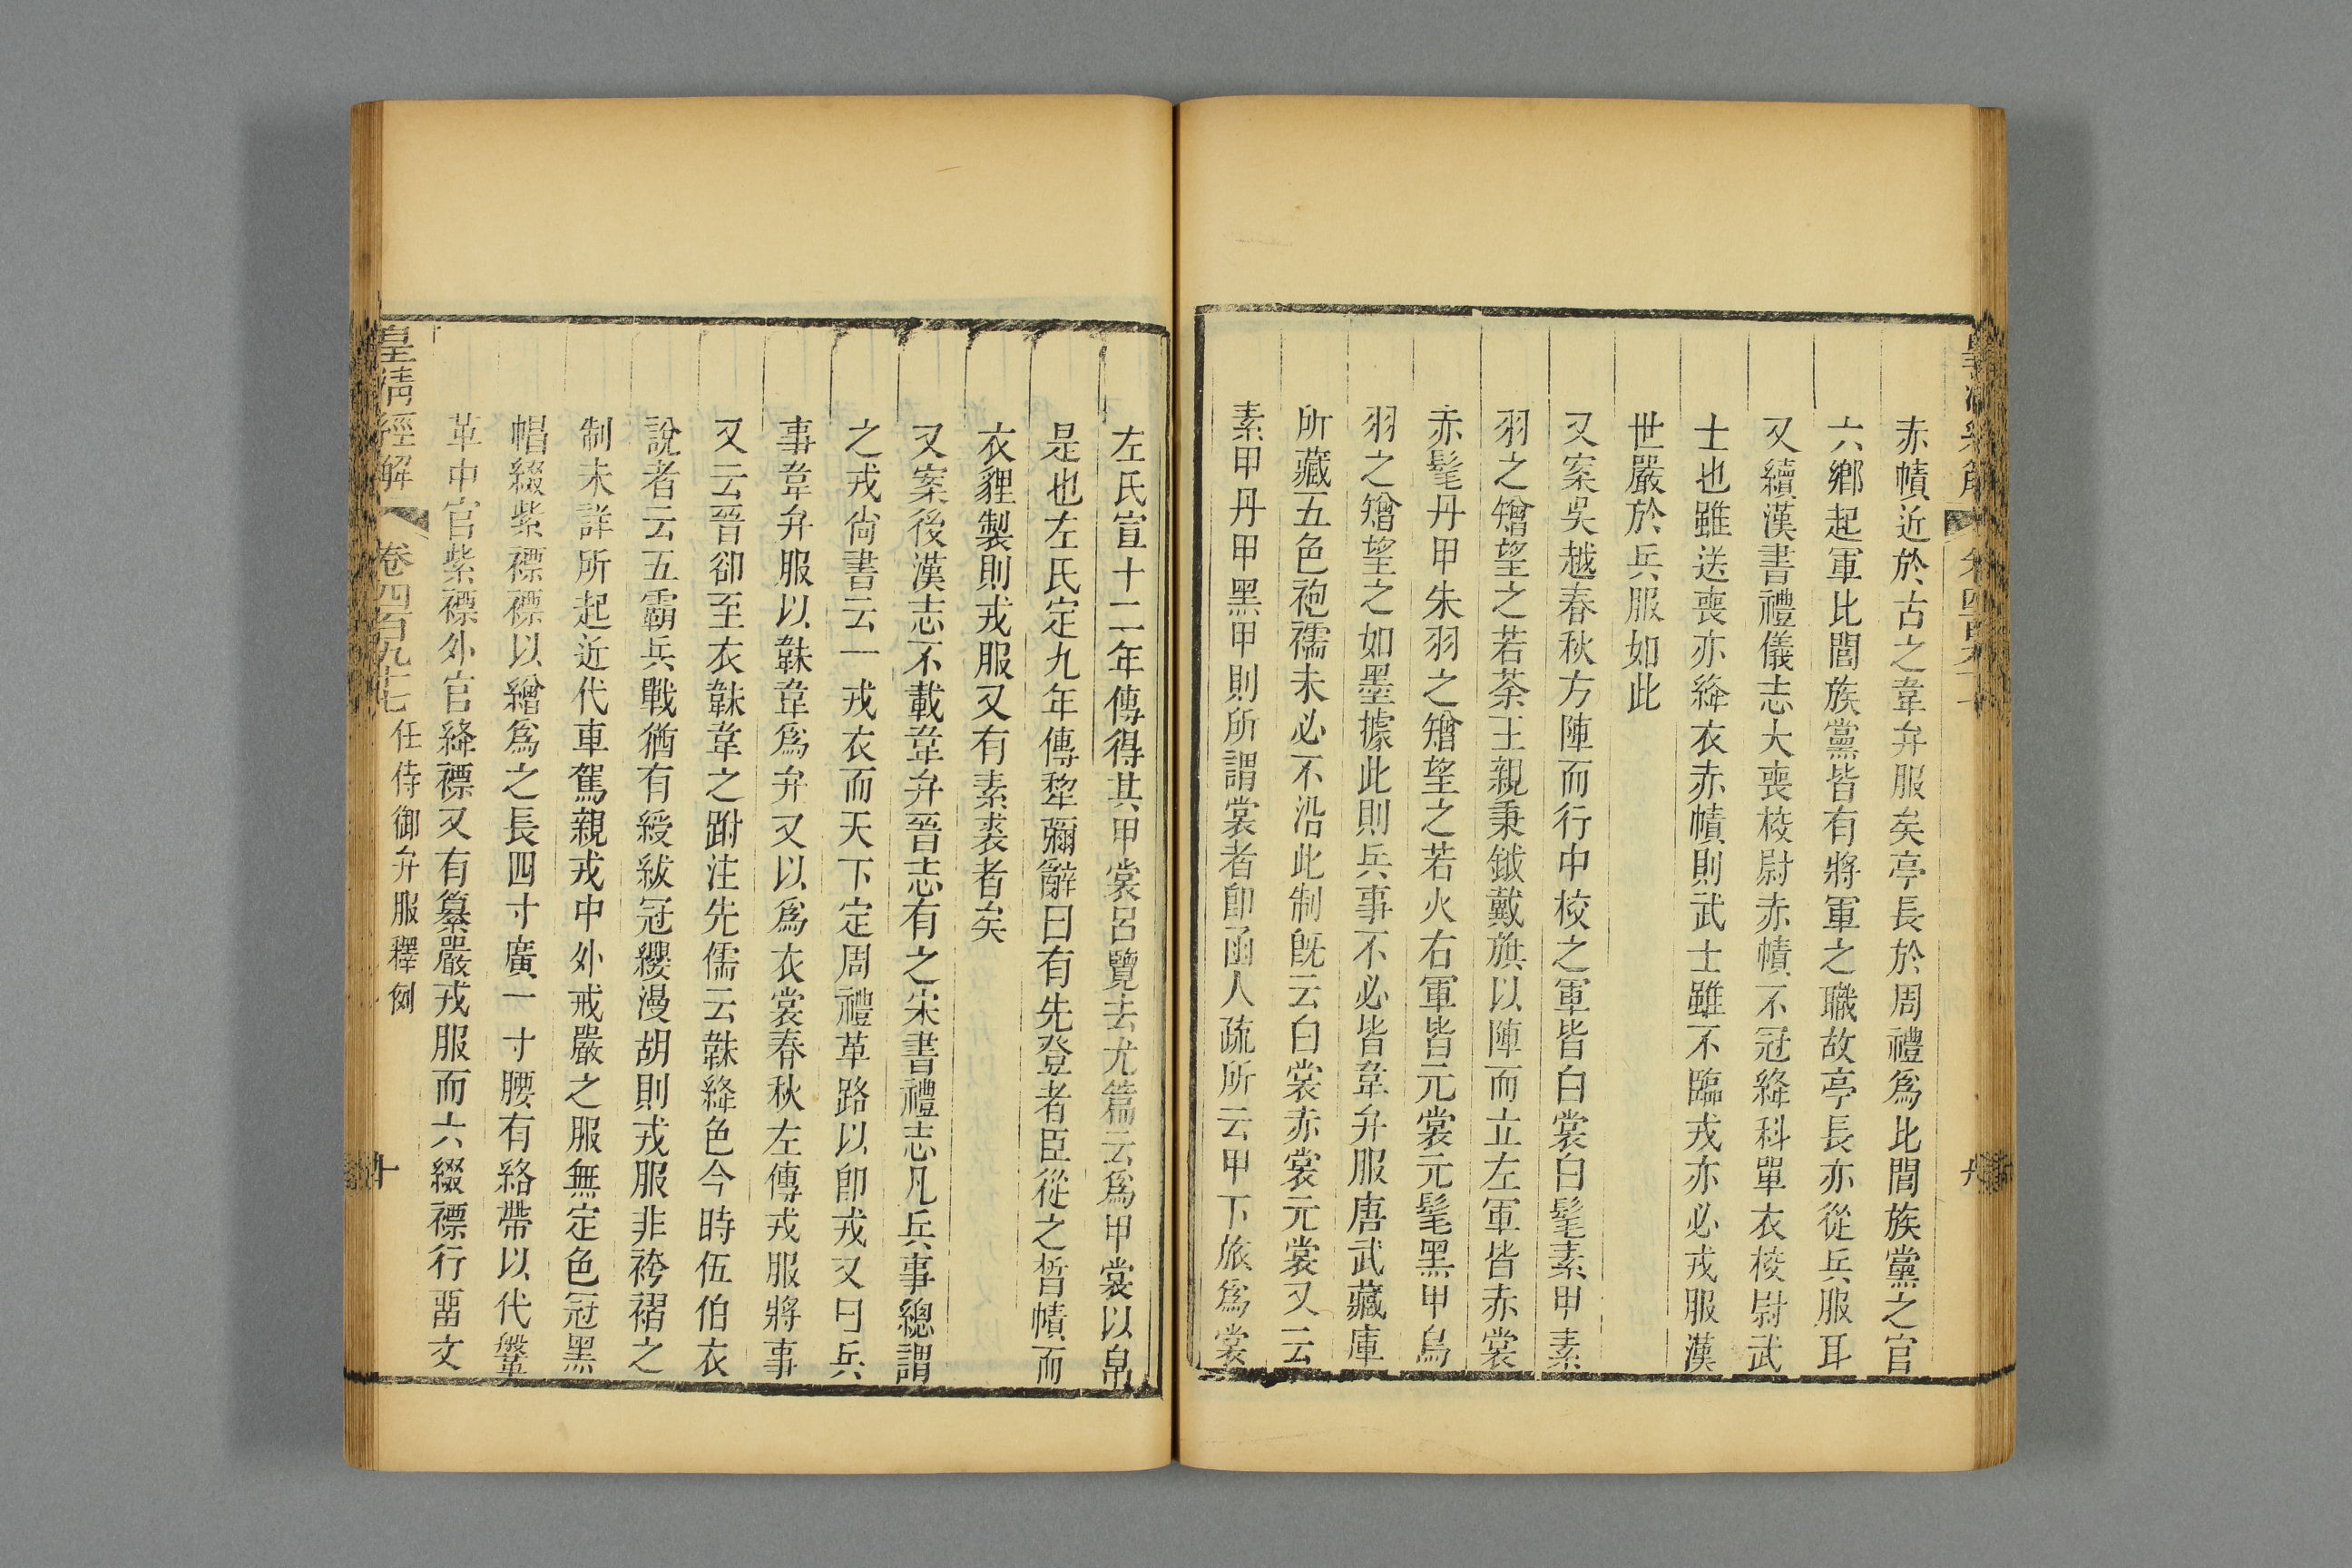 赤幘近於古之韋弁服矣亭長於周禮爲比閭族黨之官
六鄉起軍比閭族黨皆有將軍之職故亭長亦從兵服耳
又續漢書禮儀志大喪校尉赤幘不冠絳科單衣校尉武
士也雖送喪亦絳衣赤幘則武士雖不臨戎亦必戎服漢
世嚴於兵服如此
又案吳越春秋方陣而行中校之軍皆白裳白髦素甲素
羽之矰望之若荼王親秉鉞戴旗以陣而立左軍皆赤裳
赤髦丹甲朱羽之矰望之若火右軍皆元裳元髦黑甲烏
羽之矰望之如墨據此則兵事不必皆韋弁服唐武藏庫
所藏五色袍襦未必不沿此制旣云白裳赤裳元裳又云
素甲丹甲黑甲則所謂裳者卽函人疏所云甲下旅爲裳
左氏宣十二年傳得其甲裳呂覽去尤篇云爲甲裳以帛
是也左氏定九年傳犂彌辭曰有先登者臣從之晳幘而
衣貍製則戎服又有素裘者矣
又案後漢志不載韋弁晉志有之宋書禮志凡兵事總謂
之戎尙書云一戎衣而天下定周禮革路以卽戎又曰兵
事韋弁服以韎韋爲弁又以爲衣裳春秋左傳戎服將事
又云晉卻至衣韎韋之跗注先儒云韎絳色今時伍伯衣
說者云五霸兵戰猶有綬紱冠纓漫胡則戎服非袴褶之
制未詳所起近代車駕親戎中外戒嚴之服無定色冠黑
帽綴紫褾褾以繒爲之長四寸廣一寸腰有絡帶以代鞶
革中官紫褾外官絳褾又有纂嚴戎服而六綴褾行畱文
皇淸經解
卷四百九十七
任侍御弁服釋例
十